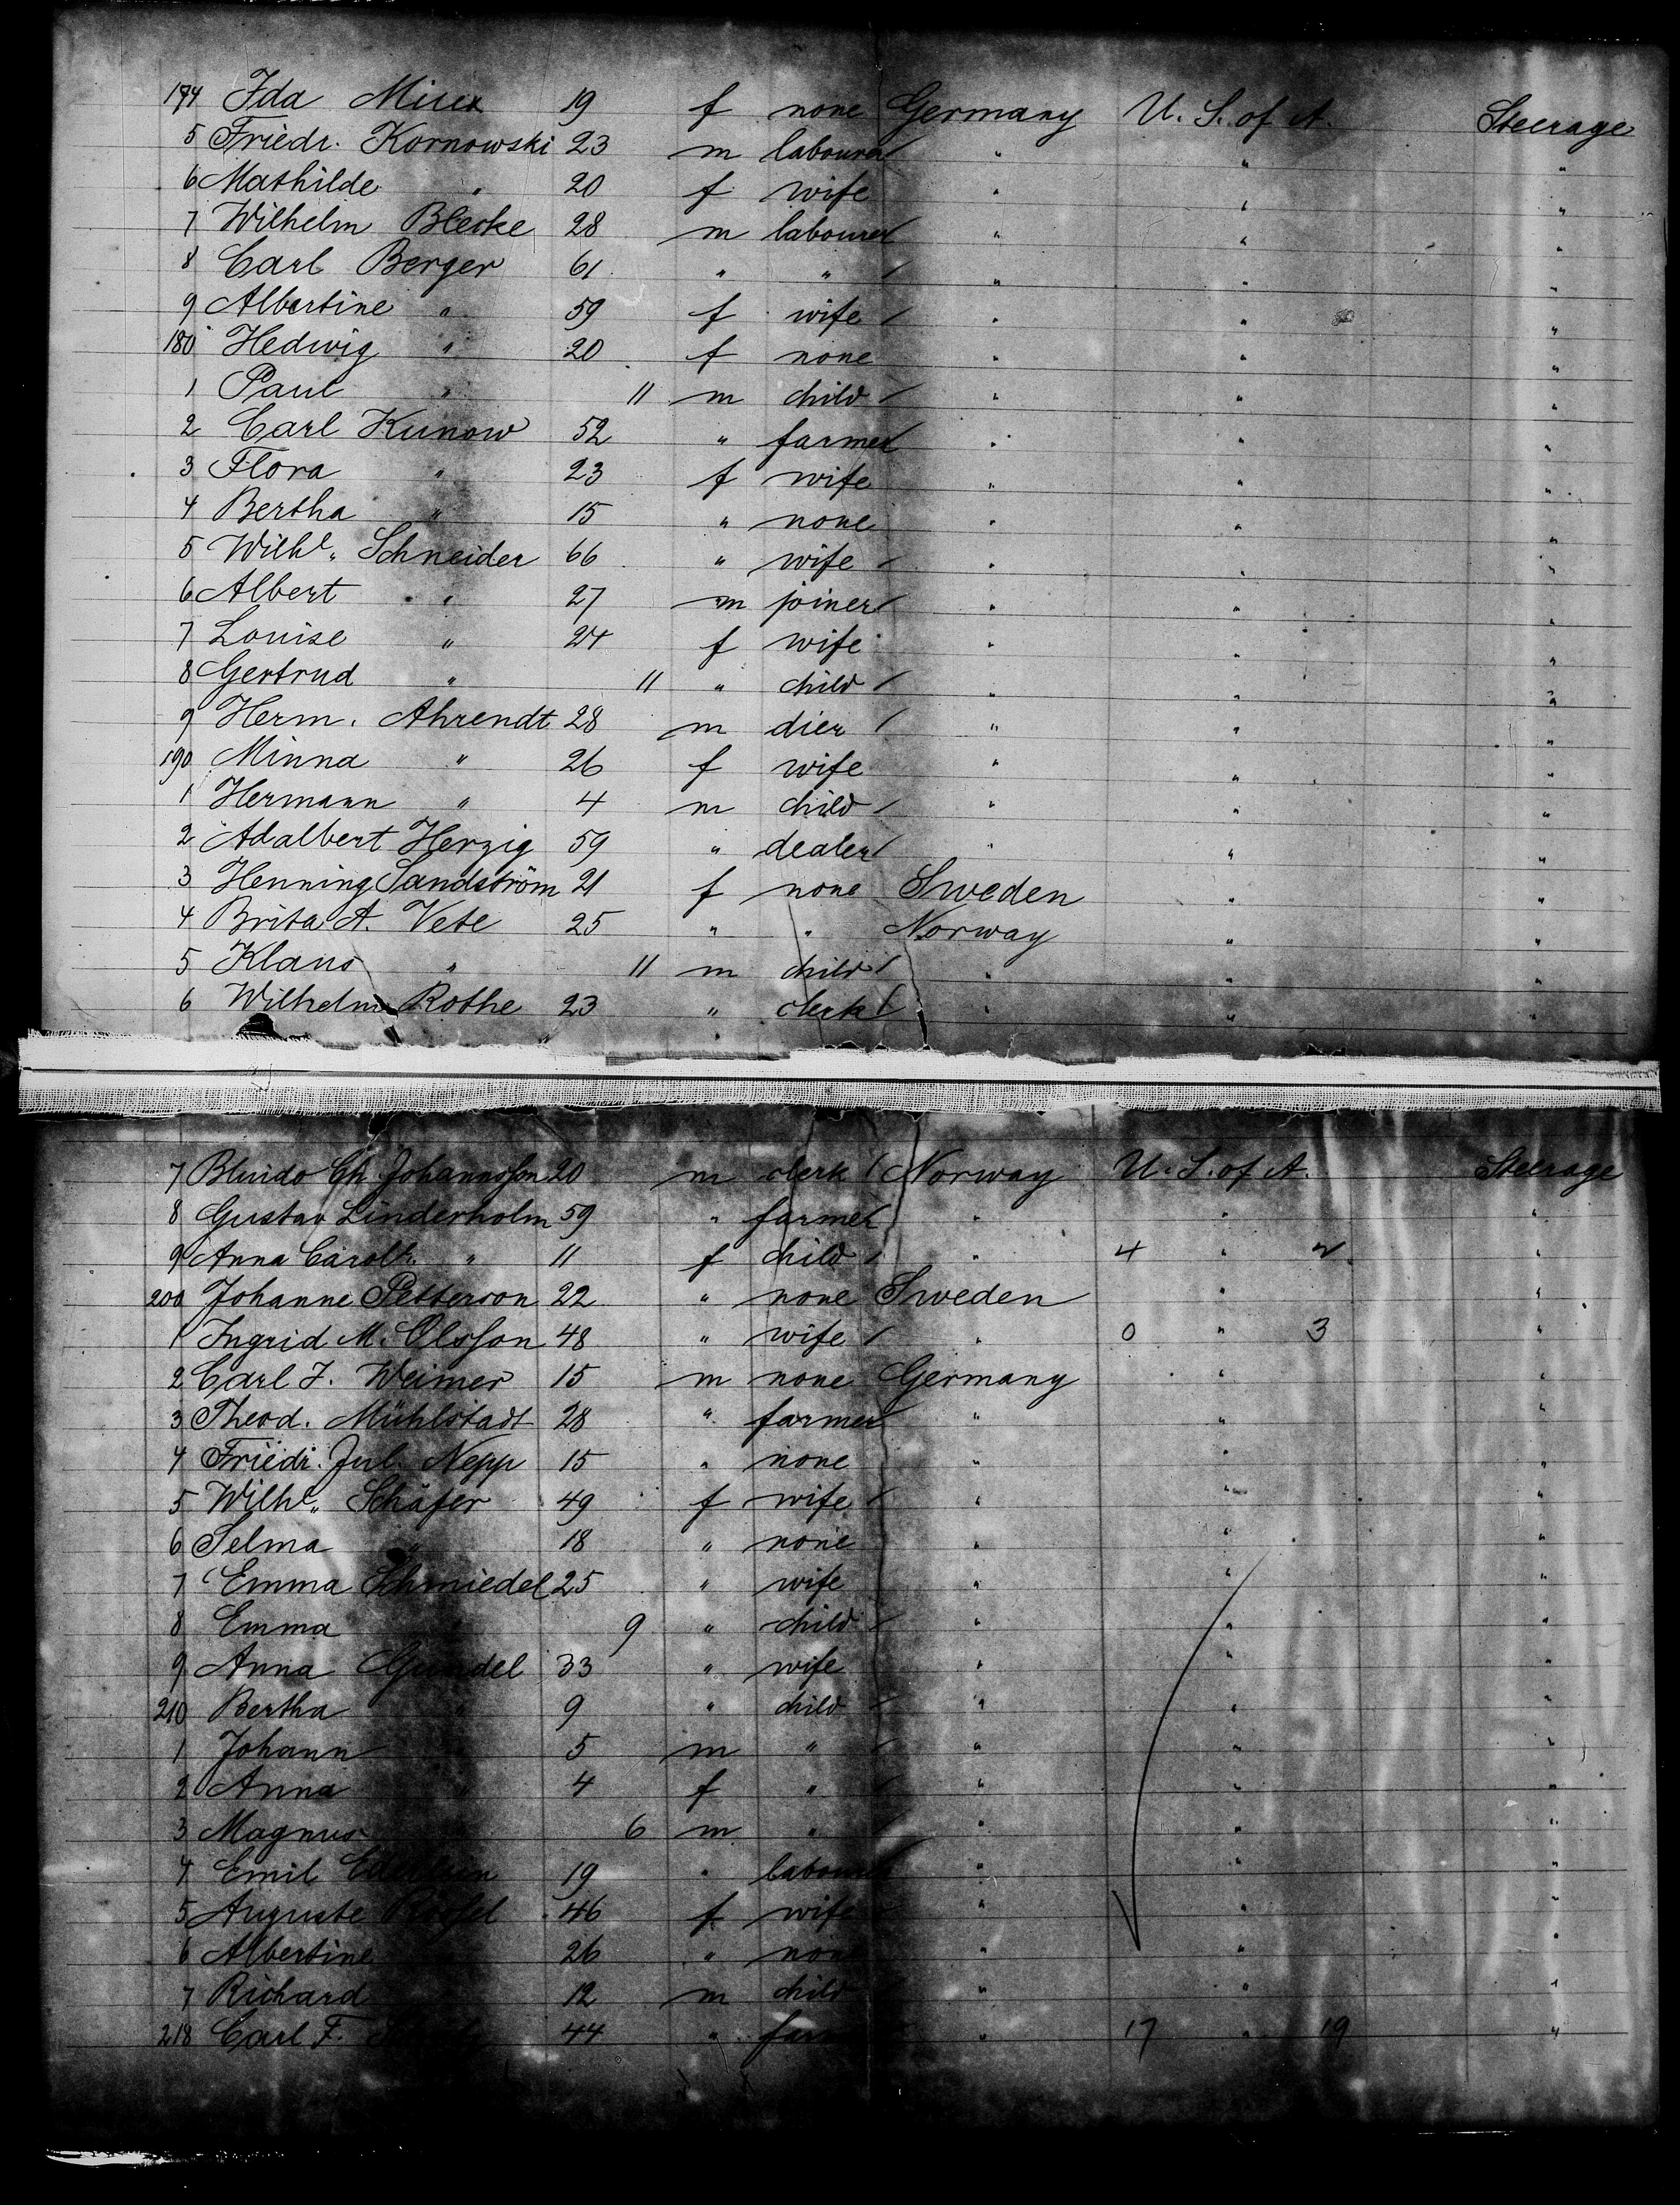 174 Ida 19 f none Germany U. S. of A. Steerage
5 Friedr. Kornowski 23 m labourer " " "
6 Mathilde " 20 f wife " " "
7 Wilhelm Blecke 28 m labourer " " "
8 Carl Berger 61 " " " " "
9 Albertine " 59 f wife " " "
180 Hedwig " 20 f none " " "
1 Paul " 11 m child " " "
2 Carl Kunow 52 " farmer " " "
3 Flora " 23 f wife " " "
4 Bertha " 15 " none " " "
5 Wilhe " Schneider 66 " wife " " "
6 Albert " 27 m joiner " " "
7 Louise " 24 f wife " " "
8 Gertrud " 11 " child " " "
9 Herm. Ahrendt 28 m dier " " "
190 Minna " 26 f wife " " "
1 Hermann " 4 m child " " "
2 Adalbert Herzig 59 " dealer " " "
3 Henning Sandström 21 f none Sweden " "
4 Brita A. Vete 25 " " Norway " "
5 Klaus " 11 m child " " "
6 Wilhelm Rothe 23 " clerk " " "
7 Ch. Johannsson 20 m clerk Norway U. S. of A. Steerage
8 Gustav Linderholm 59 " farmer " " "
9 Anna " 11 f child " 4 " 2 "
200 Johanne Petterson 22 " none Sweden " "
1 Ingrid M. Olsson 48 " wife " 0 " 3 "
2 Carl F. Weimer 15 m none Germany " "
3 Theod. Mühlstadt 28 " farmer " " "
4 Friedr. Jul. Nepp 15 " none " " "
5 Wilhe " Schäfer 49 f wife " " "
6 Selma " 18 " none " " "
7 Emma Schmiedel 25 " wife " " "
8 Emma " 9 " child " " "
9 Anna Gundel 33 " wife " " "
210 Bertha " 9 " child " " "
1 Johann " 5 m " " " "
2 Anna " 4 f " " " "
3 Magnus 6 m " " " "
4 Emil 19 " labourer " " "
5 Auguste 46 f wife " " "
6 Albertine 26 " none " " "
7 Richard 12 m child " " "
218 Carl F. 44 " farmer " 17 " 19 "